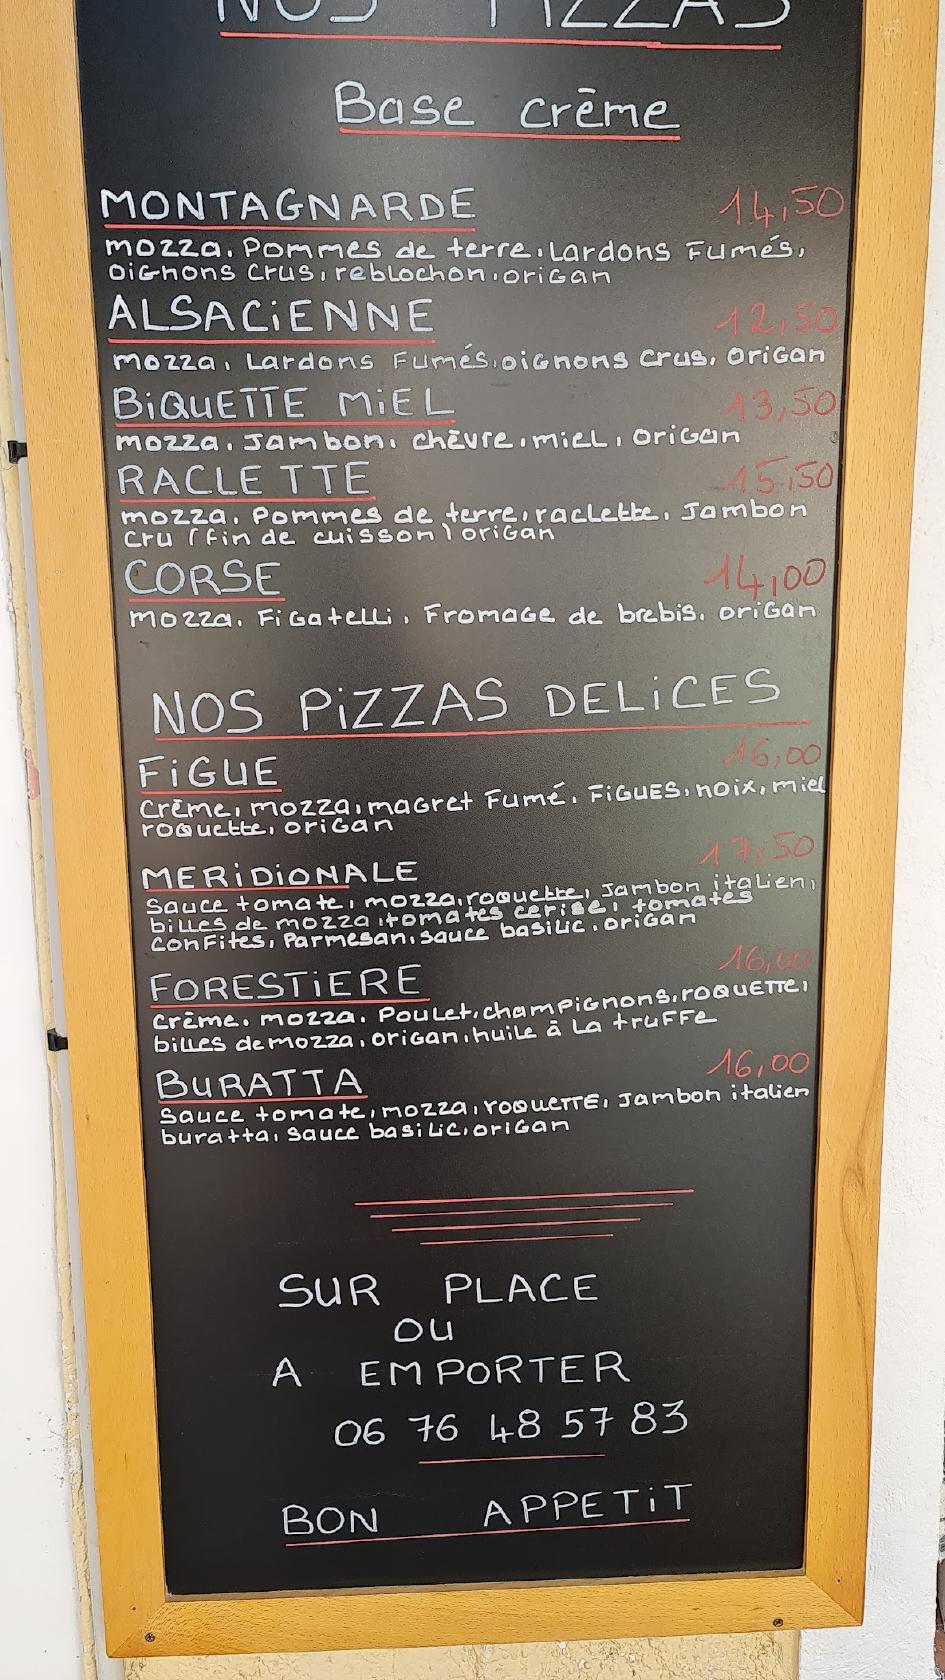 NOS PIZZAS
Base crème
MONTAGNARDE 14,50
mozza, Pommes de terre, Lardons Fumés,
oignons crus, reblochon, origan
ALSACiENNE 12,50
mozza, Lardons Fumés, oignons crus, origan
BiQUETTE MiEL 13,50
mozza, Jambon, chèvre, miel, origan
RACLETTE 15,50
mozza, Pommes de terre, raclette, Jambon
cru (fin de cuisson) origan
CORSE 14,00
mozza, Figatelli, Fromage de brebis, origan
NOS PiZZAS DELiCES
FiGUE 16,00
Crème, mozza, magret Fumé, FiGUES, noix, miel
roquette, origan
MERiDiONALE 17,50
Sauce tomate, mozza, roquette, Jambon italien,
billes de mozza, tomates cerise, tomates
confites, Parmesan, sauce basilic, origan
FORESTiERE 16,00
Crème, mozza, Poulet, champignons, roquette,
billes de mozza, origan, huile à la truffe
BURATTA 16,00
Sauce tomate, mozza, roquette, Jambon italien
buratta, sauce basilic, origan
SUR PLACE
OU
A EMPORTER
06 76 48 57 83
BON APPETiT